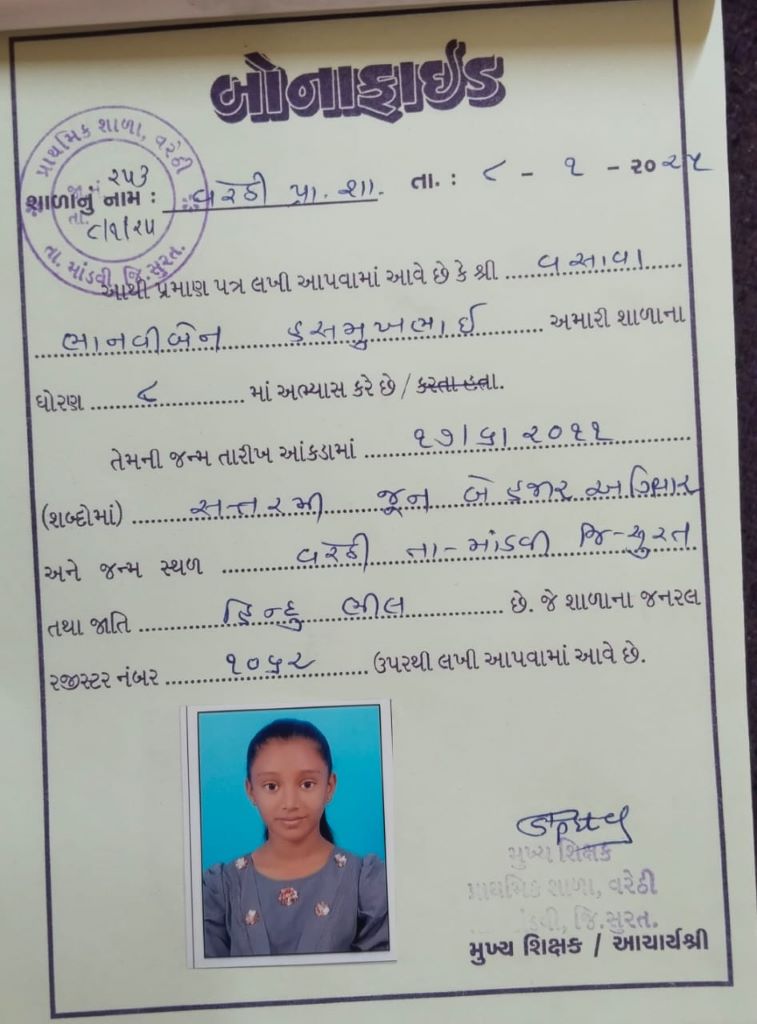 બોનાફાઈડ
પ્રાથમિક શાળા, વરેઠી
જા.નં. ૨૫૩
શાળાનું નામ : વરેઠી પ્રા. શા. તા. : ૮ - ૧ - ૨૦૨૫
તા. ૮/૧/૨૫
તા. માંડવી, જિ.સુરત.
આથી પ્રમાણ પત્ર લખી આપવામાં આવે છે કે શ્રી વસાવા
ભાનવીબેન હસમુખભાઈ અમારી શાળાના
ધોરણ ૮ માં અભ્યાસ કરે છે / કરતા હતા.
તેમની જન્મ તારીખ આંકડામાં ૧૭/૬/૨૦૧૧
(શબ્દોમાં) સત્તરમી જૂન બે હજાર અગિયાર
અને જન્મ સ્થળ વરેઠી તા-માંડવી જિ-સુરત
તથા જાતિ હિન્દુ ભીલ છે. જે શાળાના જનરલ
રજીસ્ટર નંબર ૧૦૬૨ ઉપરથી લખી આપવામાં આવે છે.
મુખ્ય શિક્ષક
પ્રાથમિક શાળા, વરેઠી
માંડવી, જિ.સુરત.
મુખ્ય શિક્ષક / આચાર્યશ્રી